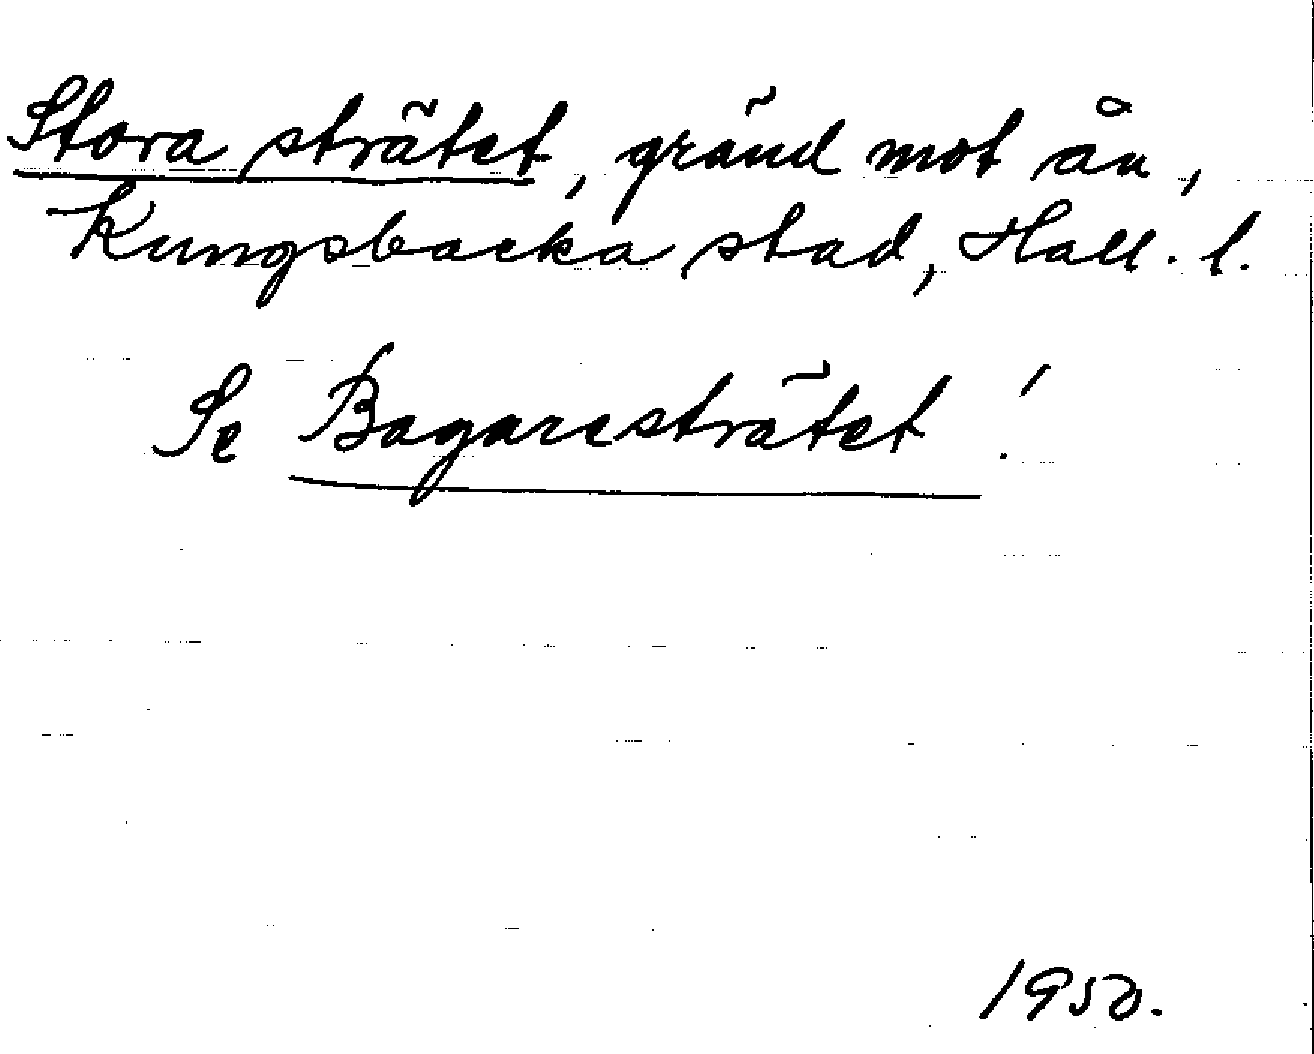 Stora strätet, gränd mot ån,
Kungsbacka stad, Hall. l.
Se Bagaresträtet!
1950.